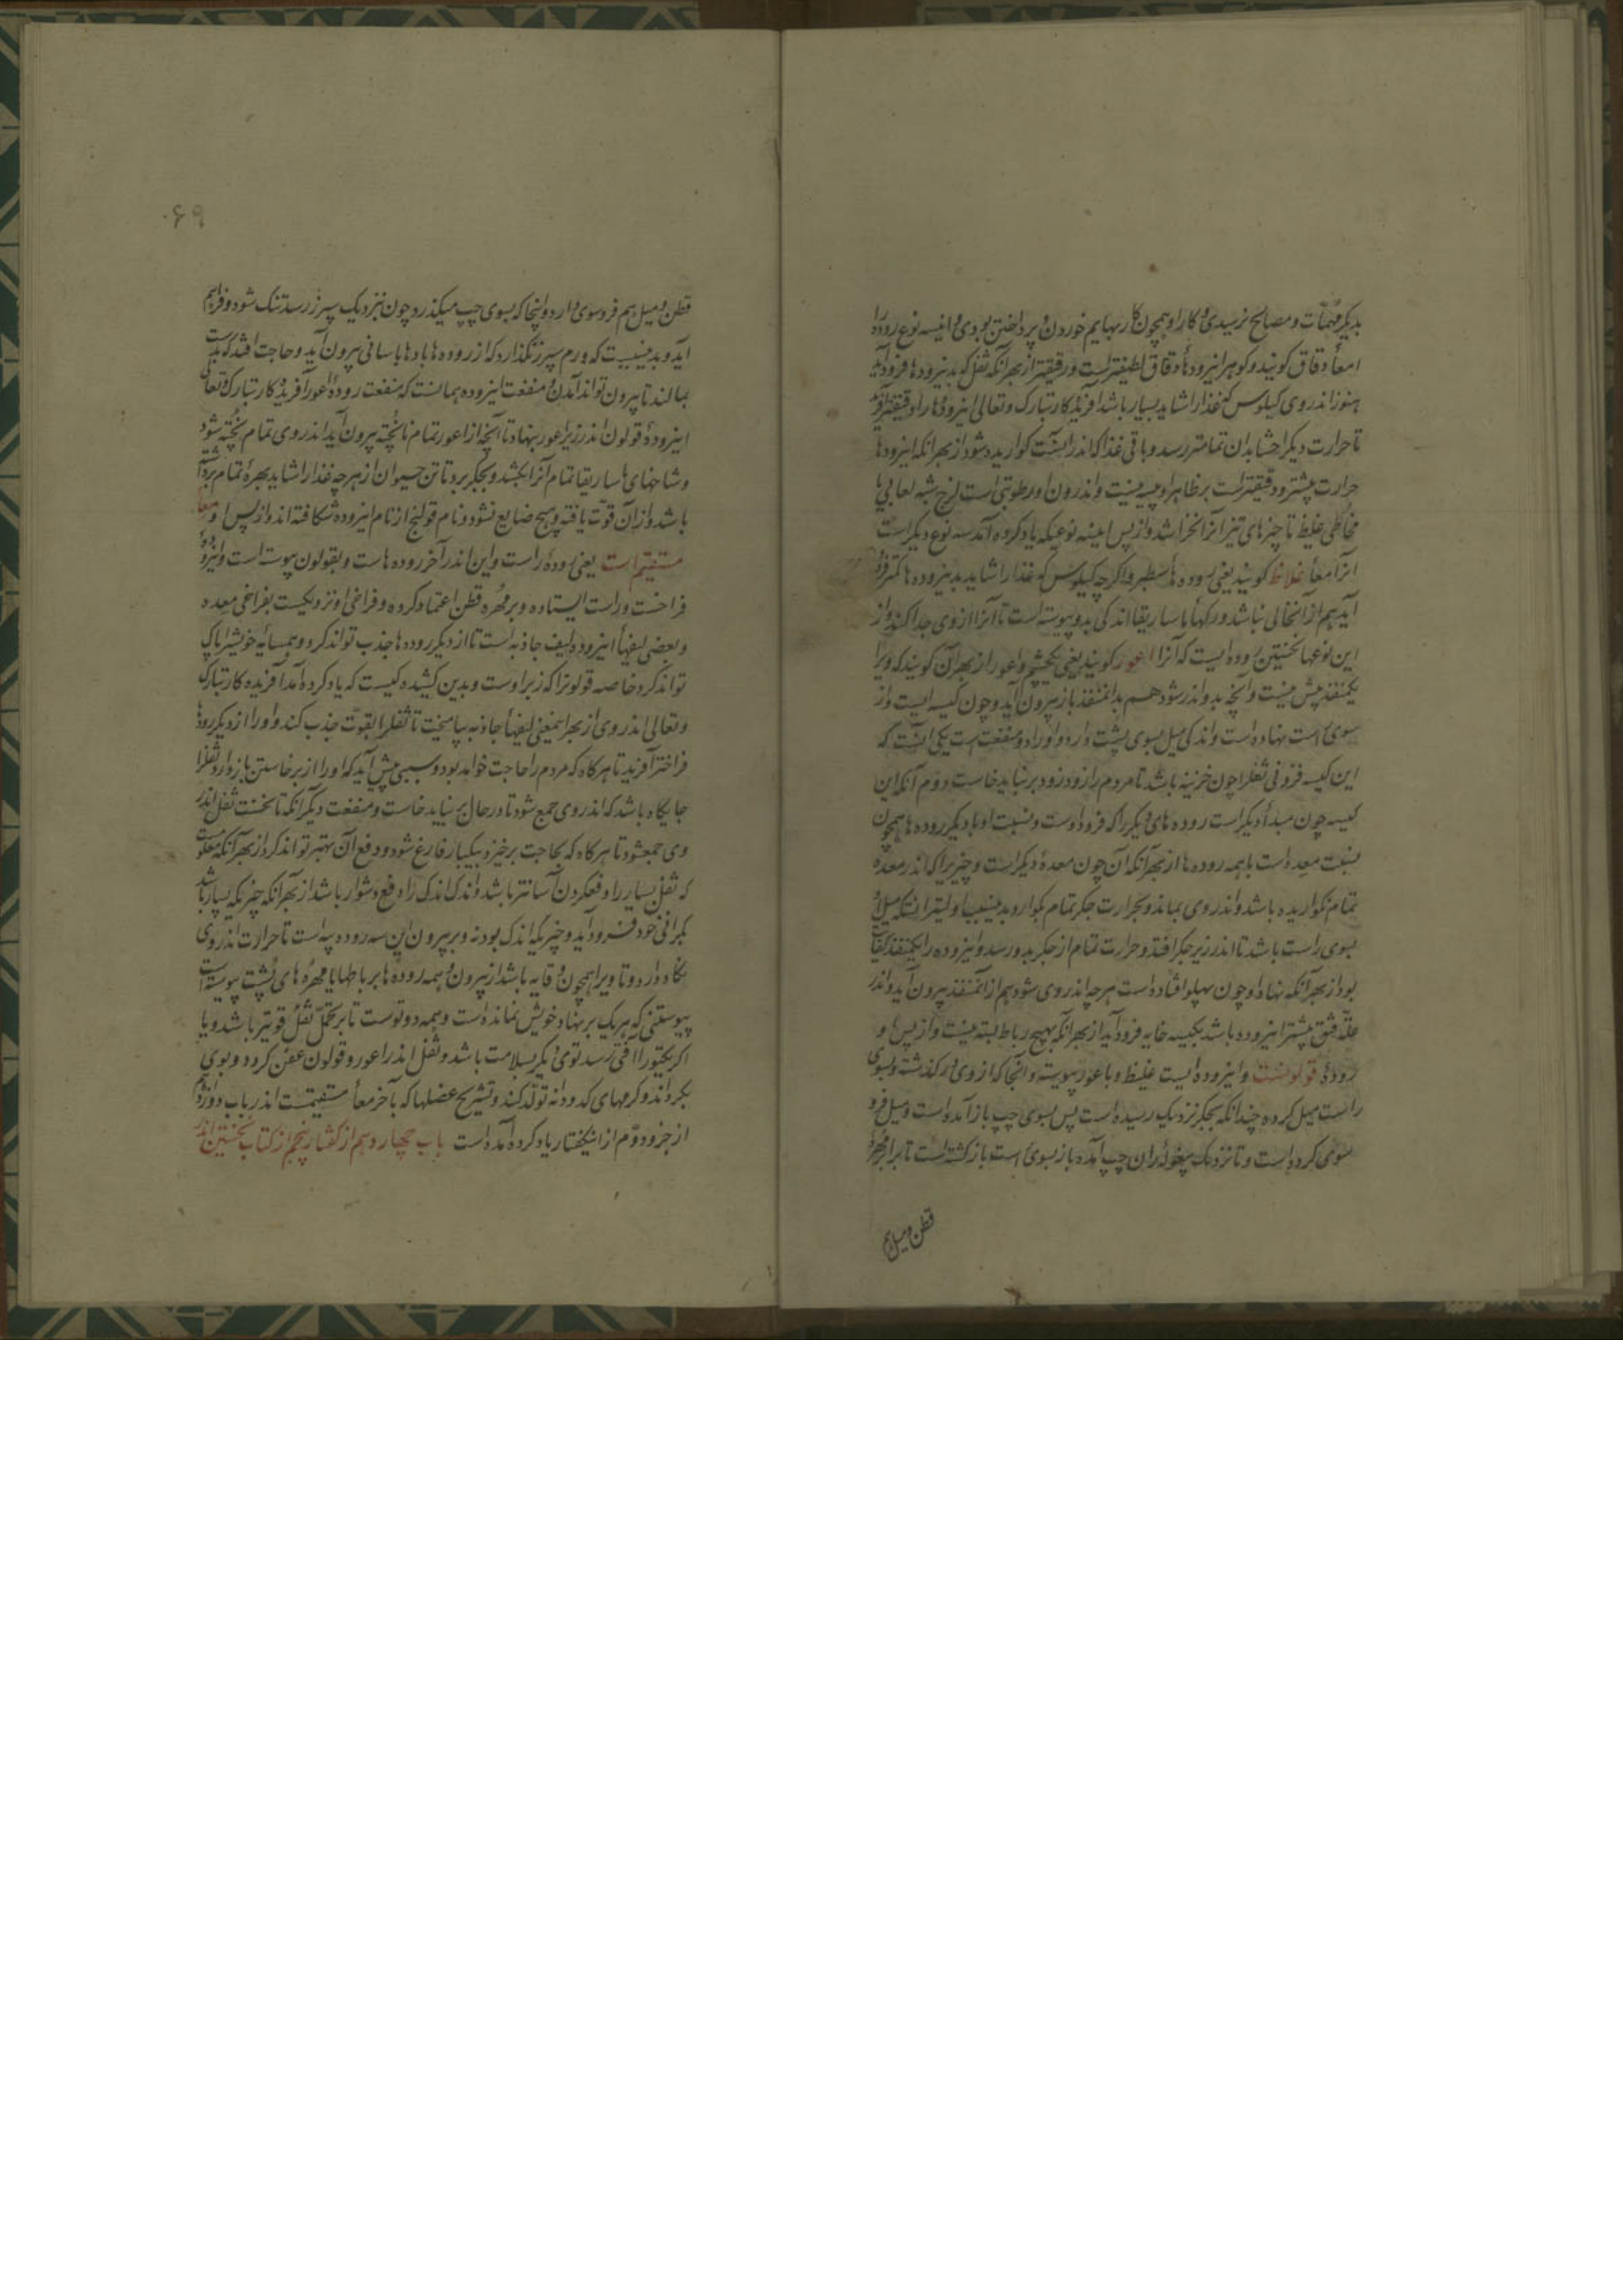 بدیکر مهمّات و مصالح نرسیدی و کار او همچون کار بهایم خوردن و پرداختن بودی و این سه نوع روده را
امعأ دقاق کویند و کوهر این روده‌ها و قاق لطیفتر است و رقیقتر از بهر آنکه ثفل که بدین روده‌ها فرود آید
هنوز اندر وی کیلوس که غذا را شاید بسیار باشد آفریدکار تبارک و تعالی این روده‌ها را رقیقتر آفرید
تا حرارت دیکر احشا بدان تمامتر رسد و باقی غذا که اندر ایشانست کواریده شود از بهر آنکه این رودها
حرارت بیشتر و رقیقتر است بر ظاهر او پیه نیست و اندرون او رطوبتی است لزج شبه لعابی یا
مخاطی غلیظ تا چیزهای تیز آنرا نخراشد و از پس این سه نوع که یاد کرده آمد سه نوع دیکر است
آنرا امعأ غلاظ کویند یعنی روده ها سطبر و اکرچه کیلوس که غذا را شاید بدین روده ها کمتر فرو
آید هم از آن خالی نباشد و رکها ماساریقا اندکی بدو پیوسته است تا آنرا از وی جدا کند و از
این نوعها نخستین روده ایست که آنرا اعور کویند یعنی یکچشم و اعور از بهر آن کویند که ویرا
یکمنفذ بیش نیست و آنچه بدو اندر شود هم بدان منفذ باز بیرون آید و چون کیسه ایست و از
سوی راست نهاده است و اندکی میل بسوی پشت دارد و او را دو منفعت است یکی آنست که
این کیسه فزونی ثفل را چون خزینه باشد تا مردم را زود زود بر نباید خاست و دوم آنکه این
کیسه چون مبدأ دیکر است روده های دیکر را که فرود اوست و نسبت او با دیکر روده ها همچون
نسبت معده است با همه روده ها از بهر آنکه آن چون معدۀ دیکر است و چیزیرا که اندر معده
تمام نکواریده باشد و اندر وی بماند و بحرارت جکر تمام بکوارد و بدین سبب اولیتر آنست که میل او
بسوی راست باشد تا اندر زیر جکر افتد و حرارت تمام از جکر بدو رسد و این روده را یکمنفذ کفایت
بود از بهر آنکه نهاد او چون بپهلو افتاده است هرچه اندر وی شود هم از آن منفذ بیرون آید و اندر
علّة فتق بیشتر این روده باشد که بکیسه خایه فرود آید از بهر آنکه بهیچ رباط بسته نیست و از پس او
رودۀ قولونست و این روده ایست غلیظ و با عور پیوسته و آنجا که از وی در کذشت و بسوی
راست میل کرده چندانکه بجکر نزدیک رسیده است پس بسوی چپ باز آمده است و میل فرو
سوی کرده است و تا نزدیک بیغولۀ ران چپ آمده باز بسوی راست باز کشته است تا برابر مهرۀ
قطن و میل هم
۶۹
قطن و میل هم فروسوی دارد و اینجا که بسوی چپ میکذرد چون بنزدیک سپرز رسد تنک شود و فراهم
آید و بدین سببیست که ورم سپرز نکذارد که از روده ها بادها باسانی بیرون آید و حاجت افتد که بدست
بمالند تا بیرون تواند آمدن و منفعت این روده همانست که منفعت رودۀ اعور آفریدکار تبارک و تعالی
این رودۀ قولون اندر زیر اعور بنهاد تا آنچه از اعور تمام ناپخته بیرون آید اندر وی تمام پخته شود
و شاخهای ماساریقا تمام آنرا بکشد و بجکر برد تا تن حیوان از هرچه غذا را شاید بهرۀ تمام برداشته
باشد و از آن قوّت یافته و هیچ ضایع نشود و نام قولنج از نام این روده شکافته اند و از پس او معأ
مستقیم است یعنی رودۀ راست و این اندر آخر روده هاست و بقولون پیوسته است و این روده
فراخست و راست ایستاده و بر مهرۀ قطن اعتماد کرده و فراخی او نزدیکست بفراخی معده
و بعضی لیفهأ این روده لیف جاذبه است تا از دیکر روده ها جذب تواند کرد و همسایه خویش را پاک
تواند کرد خاصه قولون را که زبر اوست و بدین کشیده کیست که یاد کرده آمد آفریدکار تبارک
و تعالی اندر وی از بهر این معنی لیفهأ جاذبه بیامیخت تا ثفل را بقوّت جذب کند و او را از دیکر رودها
فراختر آفرید تا هرکاه که مردم را حاجت خواهد بود و سببی پیش آید که او را از برخاستن باز دارد ثفل را
جایکاه باشد که اندر وی جمع شود تا در حال بر نباید خاست و منفعت دیکر آنکه تا نخست ثفل اندر
وی جمع شود تا هرکاه که بحاجت برخیزد بیکبار فارغ شود و دفع آن بهتر تواند کرد از بهر آنکه معلومست
که ثفل بسیار را دفع کردن آسانتر باشد و اندک اندک را دفع دشوار باشد از بهر آنکه چیزیکه بسیار باشد
بکرانی خود فرود آید و چیزیکه اندک بود نه و بر بیرون این سه روده پیه است تا حرارت اندر وی
نکاه دارد و تا ویرا همچون وقایه باشد از بیرون و همه روده ها بر باطها با مهره های پشت پیوسته است
پیوستنی که هر یک بر نهاد خویش بمانده است و همه دو توست تا بر تحمّل ثفل قویتر باشد و یا
اکر یکتو را آفتی رسد توی دیکر بسلامت باشد و ثفل اندر اعور و قولون عفن کردد و بوی
بکرداند و کرمهای کدودانه تولّد کند و تشریح عضلها که بآخر معأ مستقیمست اندر باب دوازدهم
از جزو دوّم از این کفتار یاد کرده آمده است باب چهاردهم از کفتار پنجم از کتاب نخستین اندر